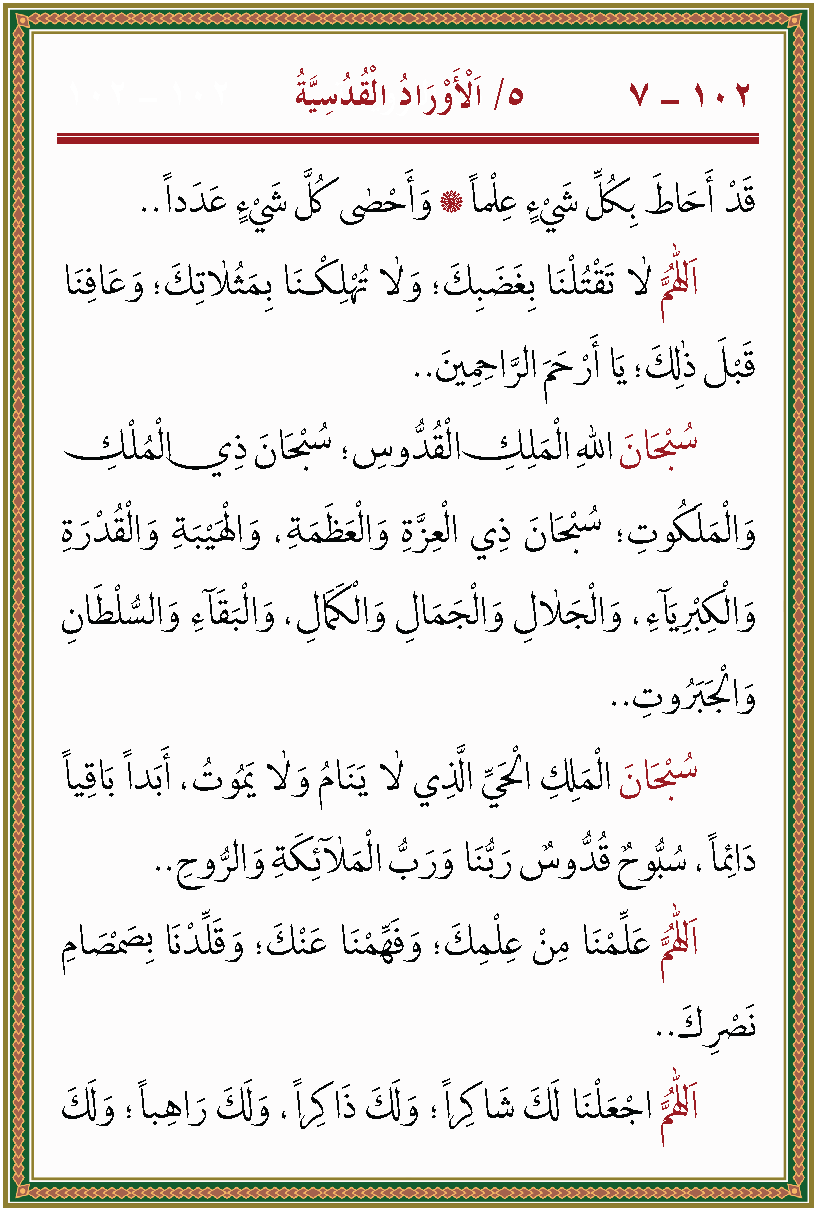 ١٠٢ – ٧ ٥/ اَلْأَوْرَادُ الْقُدُسِيَّةُ
قَدْ أَحَاطَ بِكُلِّ شَيْءٍ عِلْماً ۞ وَأَحْصٰى كُلَّ شَيْءٍ عَدَداً..
اَللّٰهُمَّ لاٰ تَقْتُلْنَا بِغَضَبِكَ؛ وَلاٰ تُهْلِكْنَا بِمَثُلاٰتِكَ؛ وَعَافِنَا
قَبْلَ ذٰلِكَ؛ يَا أَرْحَمَ الرَّاحِمِينَ..
سُبْحَانَ اللهِ الْمَلِكِ الْقُدُّوسِ؛ سُبْحَانَ ذِي الْمُلْكِ
وَالْمَلَكُوتِ؛ سُبْحَانَ ذِي الْعِزَّةِ وَالْعَظَمَةِ، وَالْهَيْبَةِ وَالْقُدْرَةِ
وَالْكِبْرِيَآءِ، وَالْجَلاٰلِ وَالْجَمَالِ وَالْكَمَالِ، وَالْبَقَآءِ وَالسُّلْطَانِ
وَالْجَبَرُوتِ..
سُبْحَانَ الْمَلِكِ الْحَيِّ الَّذِي لاٰ يَنَامُ وَلاٰ يَمُوتُ، أَبَداً بَاقِياً
دَائِماً، سُبُّوحٌ قُدُّوسٌ رَبُّنَا وَرَبُّ الْمَلاٰۤئِكَةِ وَالرُّوحِ..
اَللّٰهُمَّ عَلِّمْنَا مِنْ عِلْمِكَ؛ وَفَهِّمْنَا عَنْكَ؛ وَقَلِّدْنَا بِصَمْصَامِ
نَصْرِكَ..
اَللّٰهُمَّ اجْعَلْنَا لَكَ شَاكِراً؛ وَلَكَ ذَاكِراً، وَلَكَ رَاهِباً؛ وَلَكَ